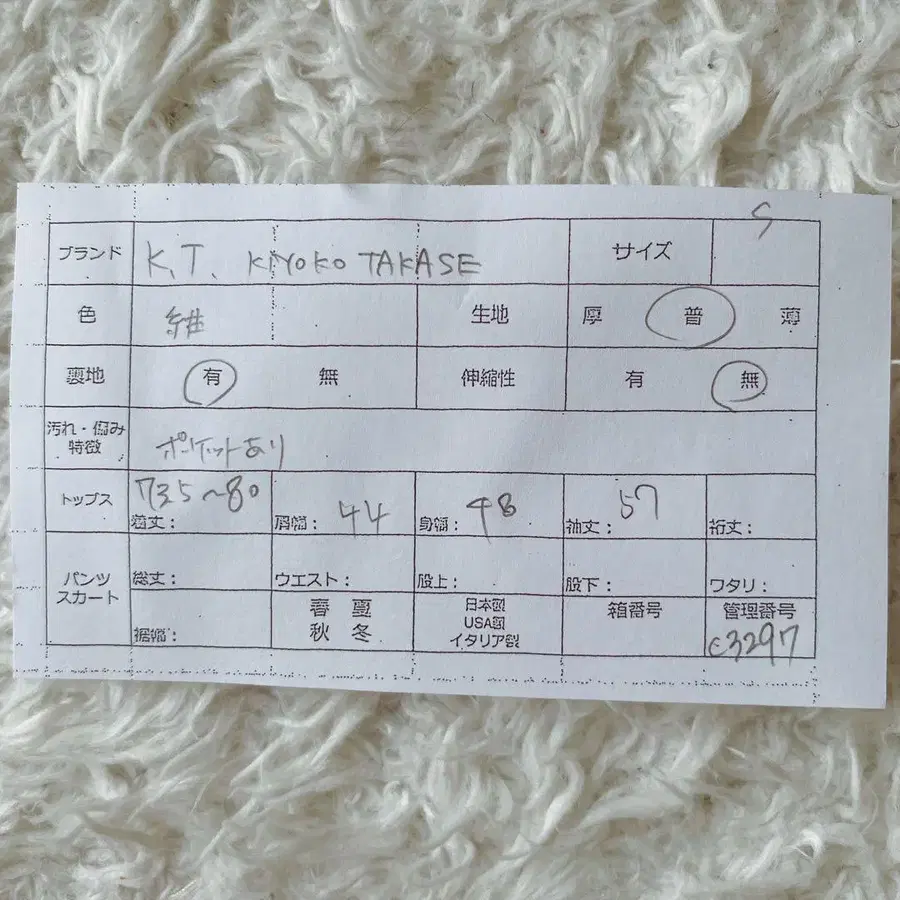 ブランド K.T. KIYOKO TAKASE サイズ S
色 生地 厚 普 薄
裏地 有 無 伸縮性 有 無
汚れ・傷み
特徴 ポケットあり
トップス 73.5〜80 44 48 57
着丈： 肩幅： 身幅： 袖丈： 裄丈：
パンツ
スカート 総丈： ウエスト： 股上： 股下： ワタリ：
裾幅： 春 夏
秋 冬 日本製
USA製
イタリア製 箱番号 管理番号
C3297